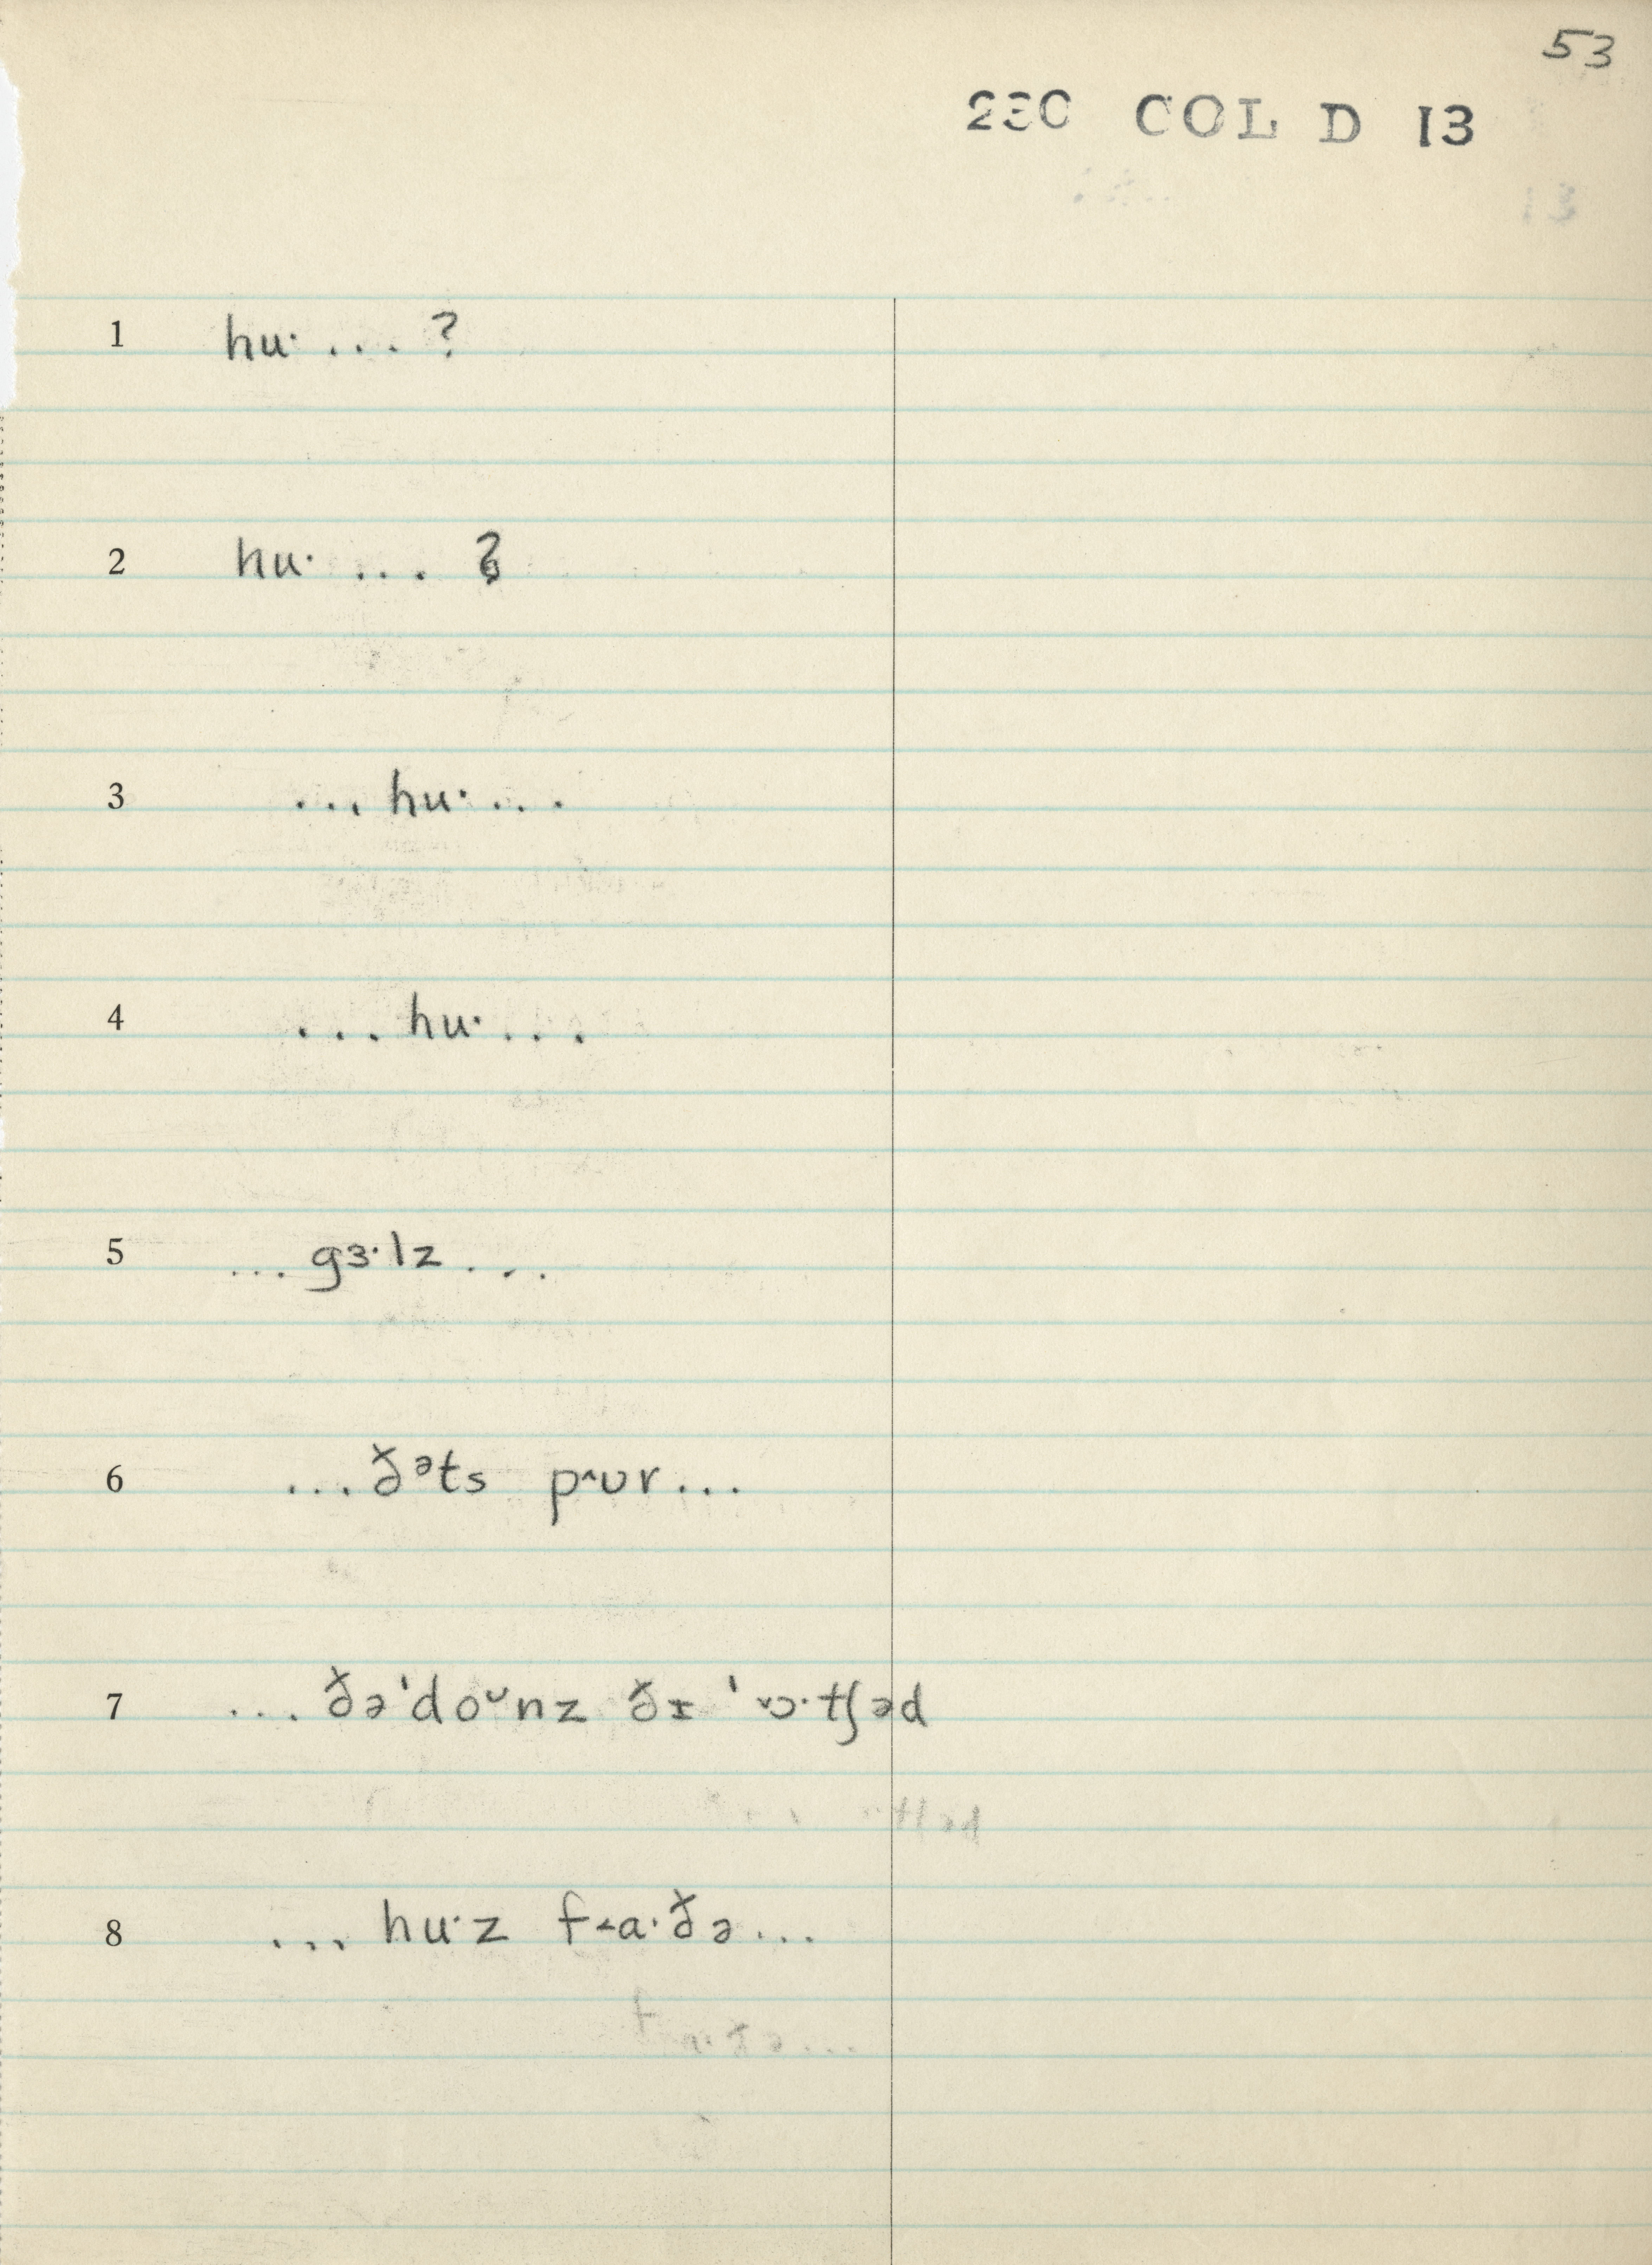 53
230 COL D 13
1 huˑ ... ?
2 huˑ ... ?
3 ... huˑ ...
4 ... huˑ ...
5 ... gɜˑlz ...
6 ... ðᵊts p˄ʊr ...
7 ... ðəˈdoᶷnz ðɪ ˈ˅ɔˑtʃəd
8 ... huˑz f˂aˑðə ...